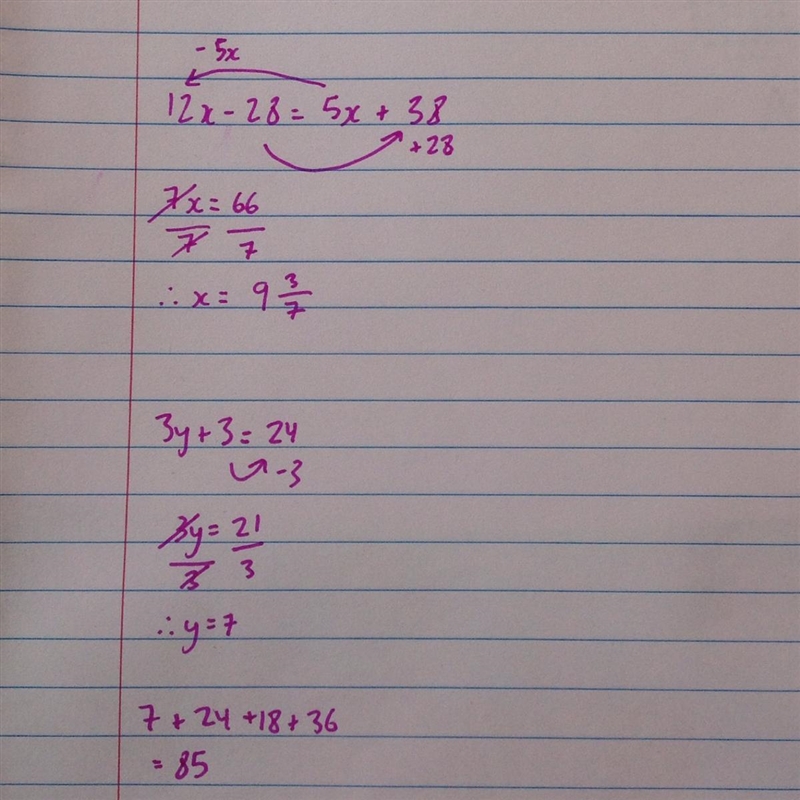 - 5x
12x - 28 = 5x + 38
+28
7x = 66
7 7
∴ x = 9 3/7
3y + 3 = 24
-3
3y = 21
3 3
∴ y = 7
7 + 24 + 18 + 36
= 85